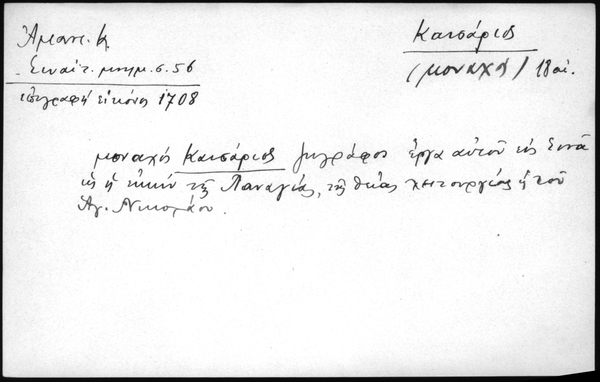 Ἀμαντ. Κ.
Σιναϊτ. μνημ. σ. 56
ἐπιγραφή εἰκόνος 1708
Καισάριος
(μοναχός) 18 αἰ.
μοναχός Καισάριος ζωγράφος ἔργα αὐτοῦ εἰς Σινᾶ
ὡς ἡ εἰκών τῆς Παναγίας, τῆς θείας λειτουργίας ἡ τοῦ
Ἁγ. Νικολάου.